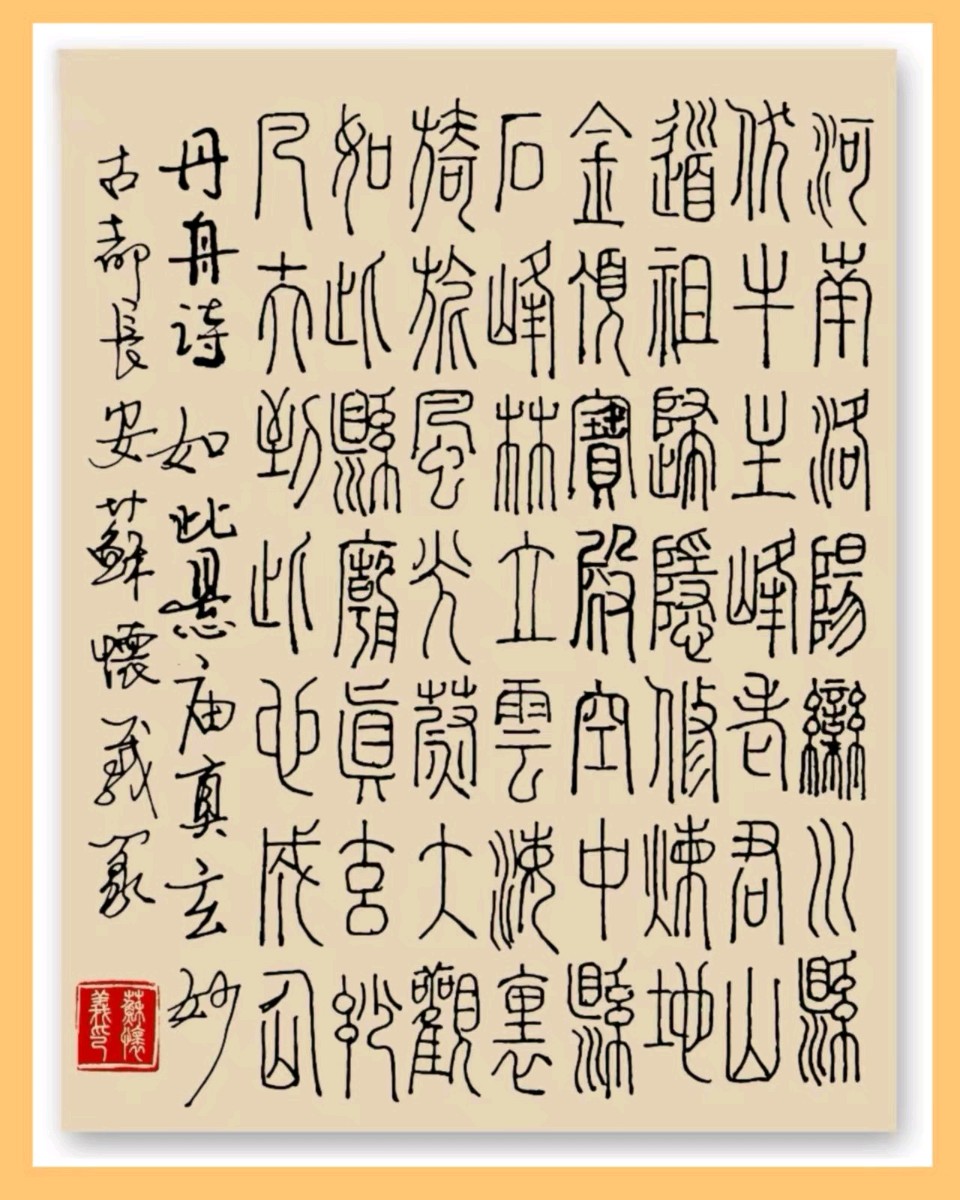 河南洛陽欒川縣
伏牛主峰老君山
道祖歸隱修煉地
金頂寶殿空中縣
石峰林立雲海裏
旖旎風光蔚大觀
如此縣廟眞玄妙
凡夫到此也成仙
丹舟詩 如此悬庙真玄妙
古都長安蘇懷義篆
蘇懷義印